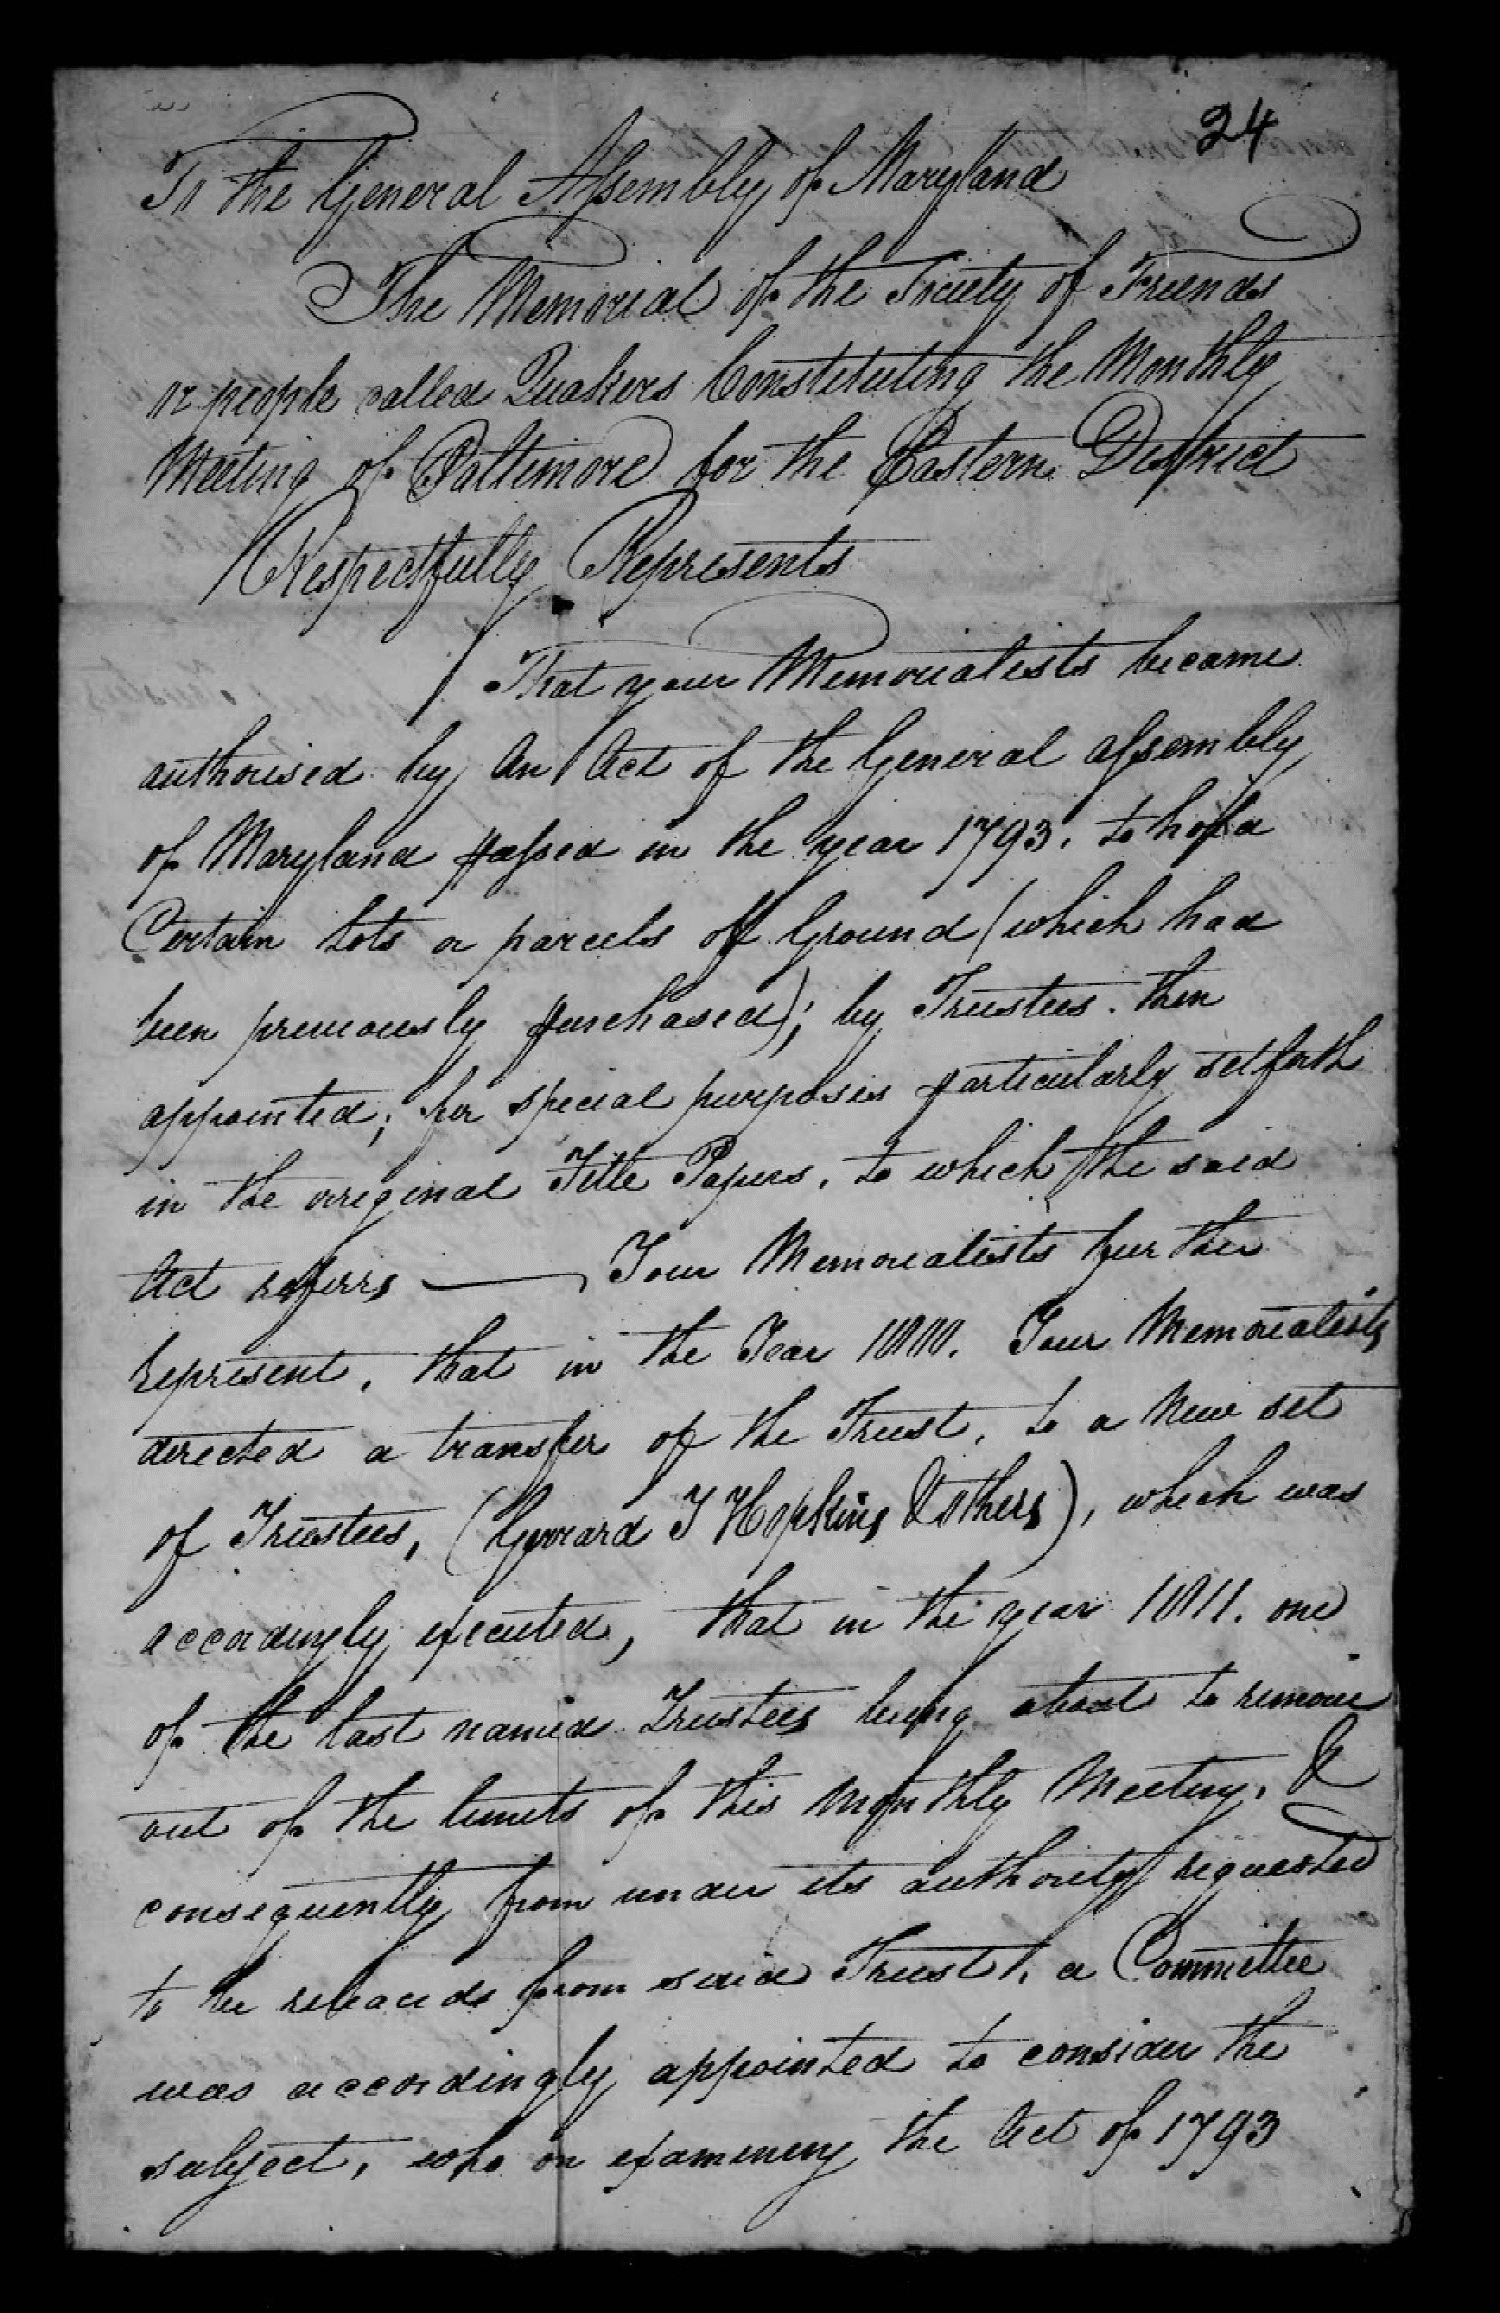 24
To the General Assembly of Maryland
The Memorial of the Society of Friends
or people called Quakers Constituting the Monthly
Meeting of Baltimore for the Eastern District
Respectfully Represents
That your Memorialists became
authorised by An Act of the General assembly
of Maryland passed in the year 1793. to hold
Certain Lots or parcels of Ground (which had
been previously purchased); by Trustees. then
appointed; for special purposes particularly set forth
in the original Title Papers, to which the said
Act referrs — Your Memorialists further
represent, that in the Year 1800. Your Memorialists
directed a transfer of the Trust, to a New set
of Trustees, (Gerrard T Hopkins & others), which was
accordingly executed, that in the year 1811. one
of the last named Trustees being about to remove
out of the limits of this Monthly Meeting, &
consequently from under its authority requested
to be released from said Trust, a Committee
was accordingly appointed to consider the
subject, who on examining the Act of 1793